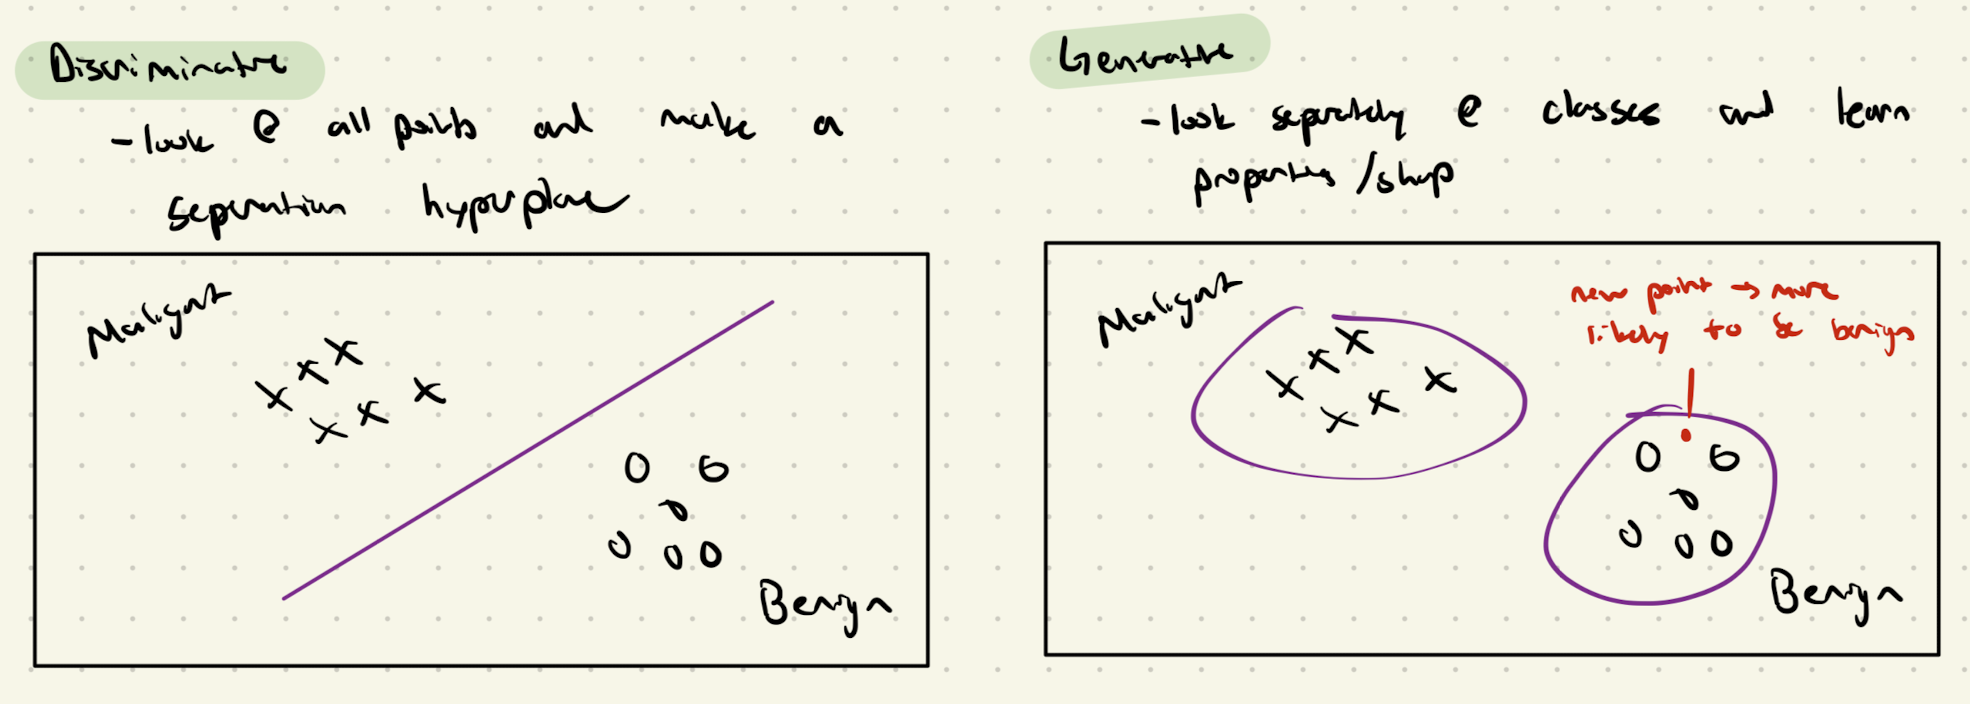 Discriminative
- look @ all points and make a
seperation hyperplane
Malignant
Benign
Generative
- look separately @ classes and learn
properties / shape
Malignant
new point → more
likely to be benign
Benign